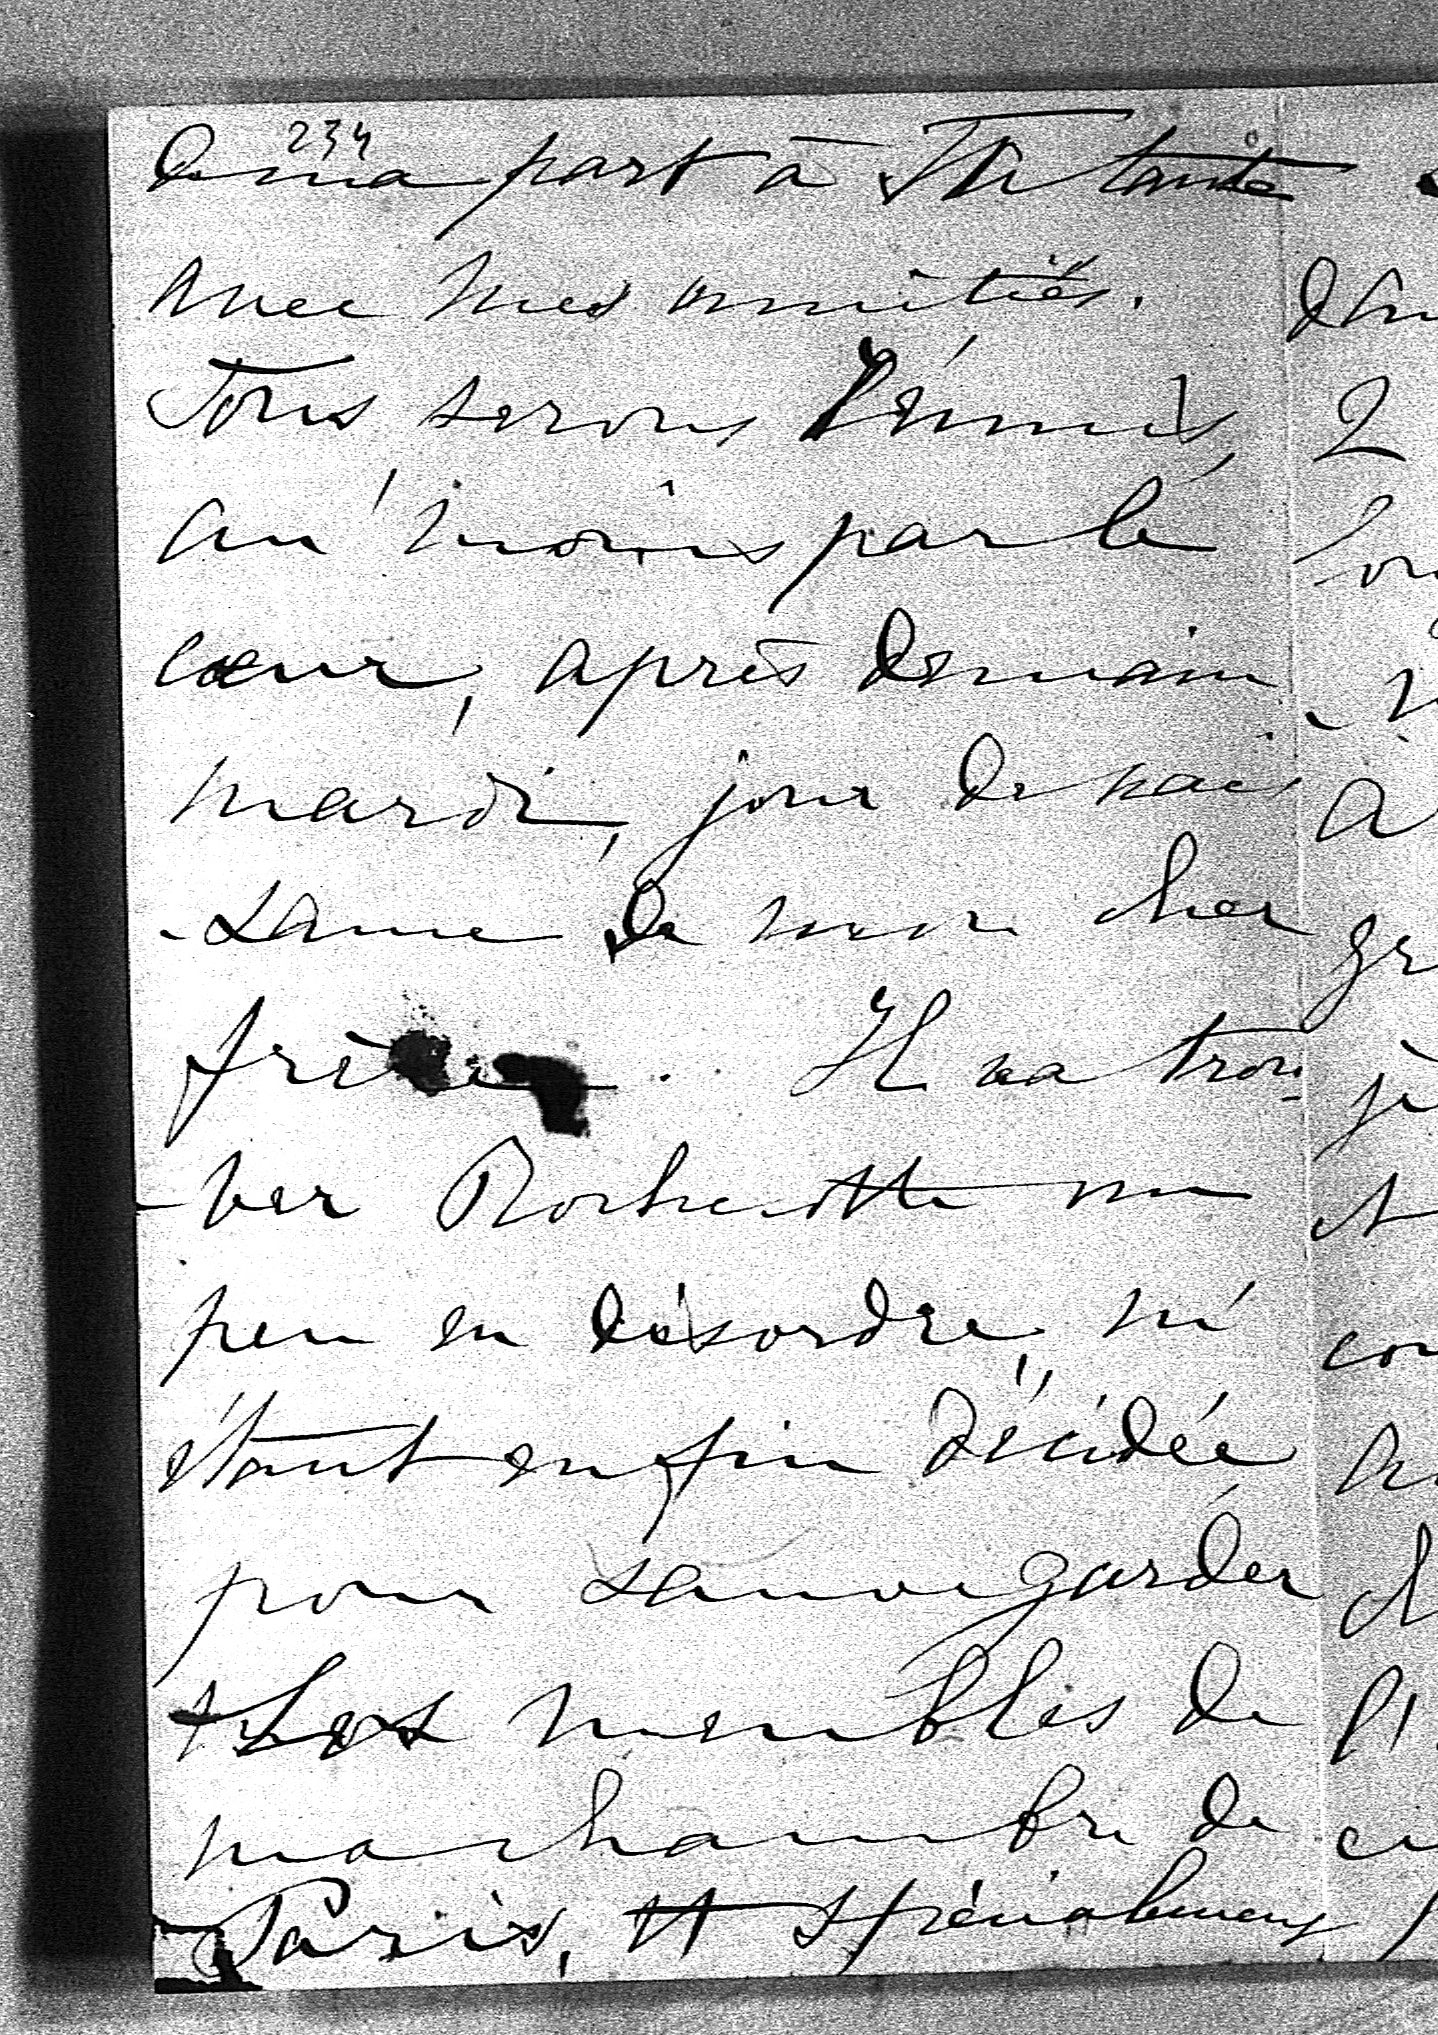 234
De ma part à Ta tante
avec mes amitiés.
Tous serons Réunis,
au moins par le
cœur, après demain
mardi, jour de nais
-sance de mon cher
frère. Il va trou-
-ver Rochecotte un
peu en désordre, m'
étant enfin décidée,
pour sauvegarder
les meubles de
ma chambre de
Paris, et spécialement